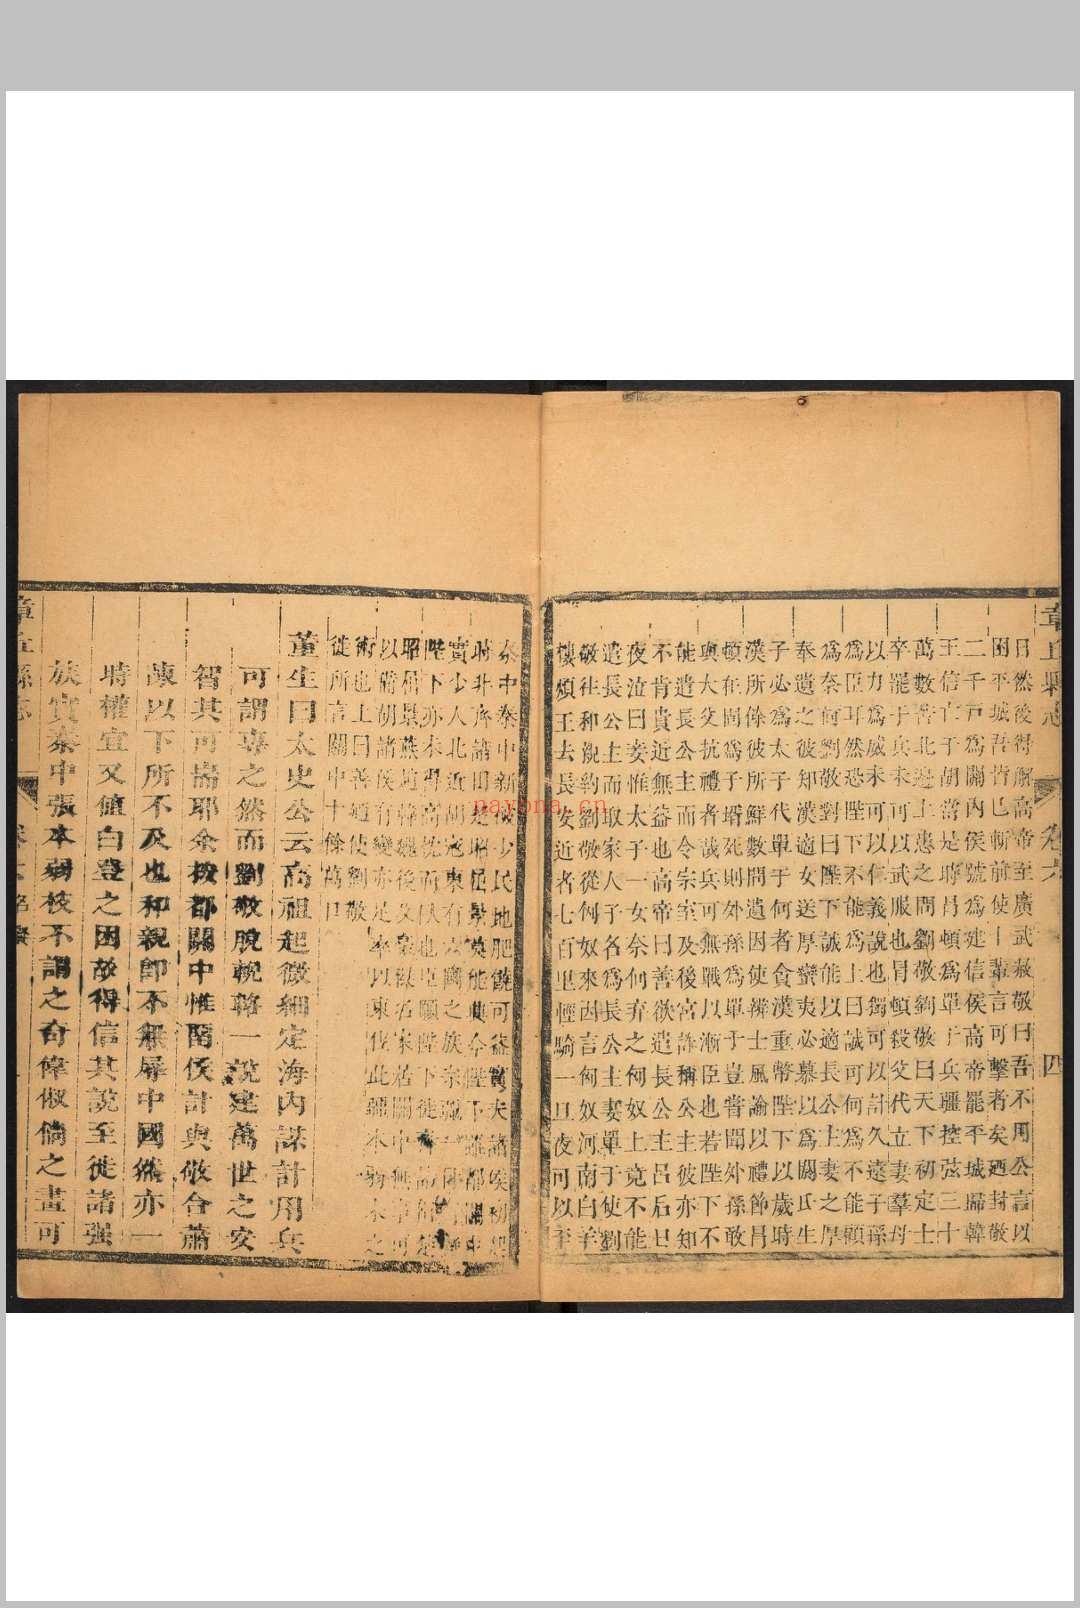 章丘縣志
卷六
四
日然後得解高帝至廣武赦敬曰吾不用公言以
困平城吾皆已斬前使十輩言可擊者矣迺封敬
二千戶為關內侯號為建信侯高帝罷平城歸韓
王信亡于胡當是時冒頓為單于兵彊控弦三十
萬數苦北邊上患之問劉敬劉敬曰天下初定士
卒罷于兵未可以武服也冒頓殺父代立妻羣母
以力為威未可以仁義說也獨可以計久遠子孫
為臣耳然恐陛下不能為上曰誠可何為不能顧
為奈何劉敬對曰陛下誠能以適長公主妻之厚
奉遺之彼知漢適女送厚蠻夷必慕以為閼氏生
子必為太子代單于何者貪漢重幣陛下以歲時
漢所餘彼所鮮數問遺因使辨士風諭以禮節冒
頓在固為子壻死則外孫為單于豈嘗聞外孫敢
與大父抗禮者哉兵可無戰以漸臣也若陛下不
能遣長公主而令宗室及後宮詐稱公主彼亦知
不肯貴近無益也高帝曰善欲遣長公主呂后日
夜泣曰妾惟太子一女奈何弃之匈奴上竟不能
遣長公主而取家人子名為長公主妻單于使劉
敬往和親約劉敬從匈奴來因言匈奴河南白羊
樓煩王去長安近者七百里輕騎一日夜可以至
秦中秦中新破少民地肥饒可益實夫諸侯初起
時非齊諸田楚昭屈景莫能興今陛下雖都關中
實少人北近胡寇東有六國之族宗彊一
陛下亦未得高枕而臥也臣願陛下徙齊諸田楚
昭屈景燕趙韓魏後及豪傑名家居關中無事可
以備胡諸侯有變亦足率以東伐此彊本弱末之
術也上曰善迺使劉敬
徙所言關中十餘萬口
董生曰太史公云高祖起微細定海內謀計用兵
可謂專之然而劉敬脫輓輅一說建萬世之安
智其可耑耶余按都關中惟留侯計與敬合蕭
諫以下所不及也和親即不無辱中國然亦一
時權宜又値白登之困故得信其說至徙諸强
族實秦中張本弱枝不謂之奇偉俶儻之畫可
章丘縣志
卷六